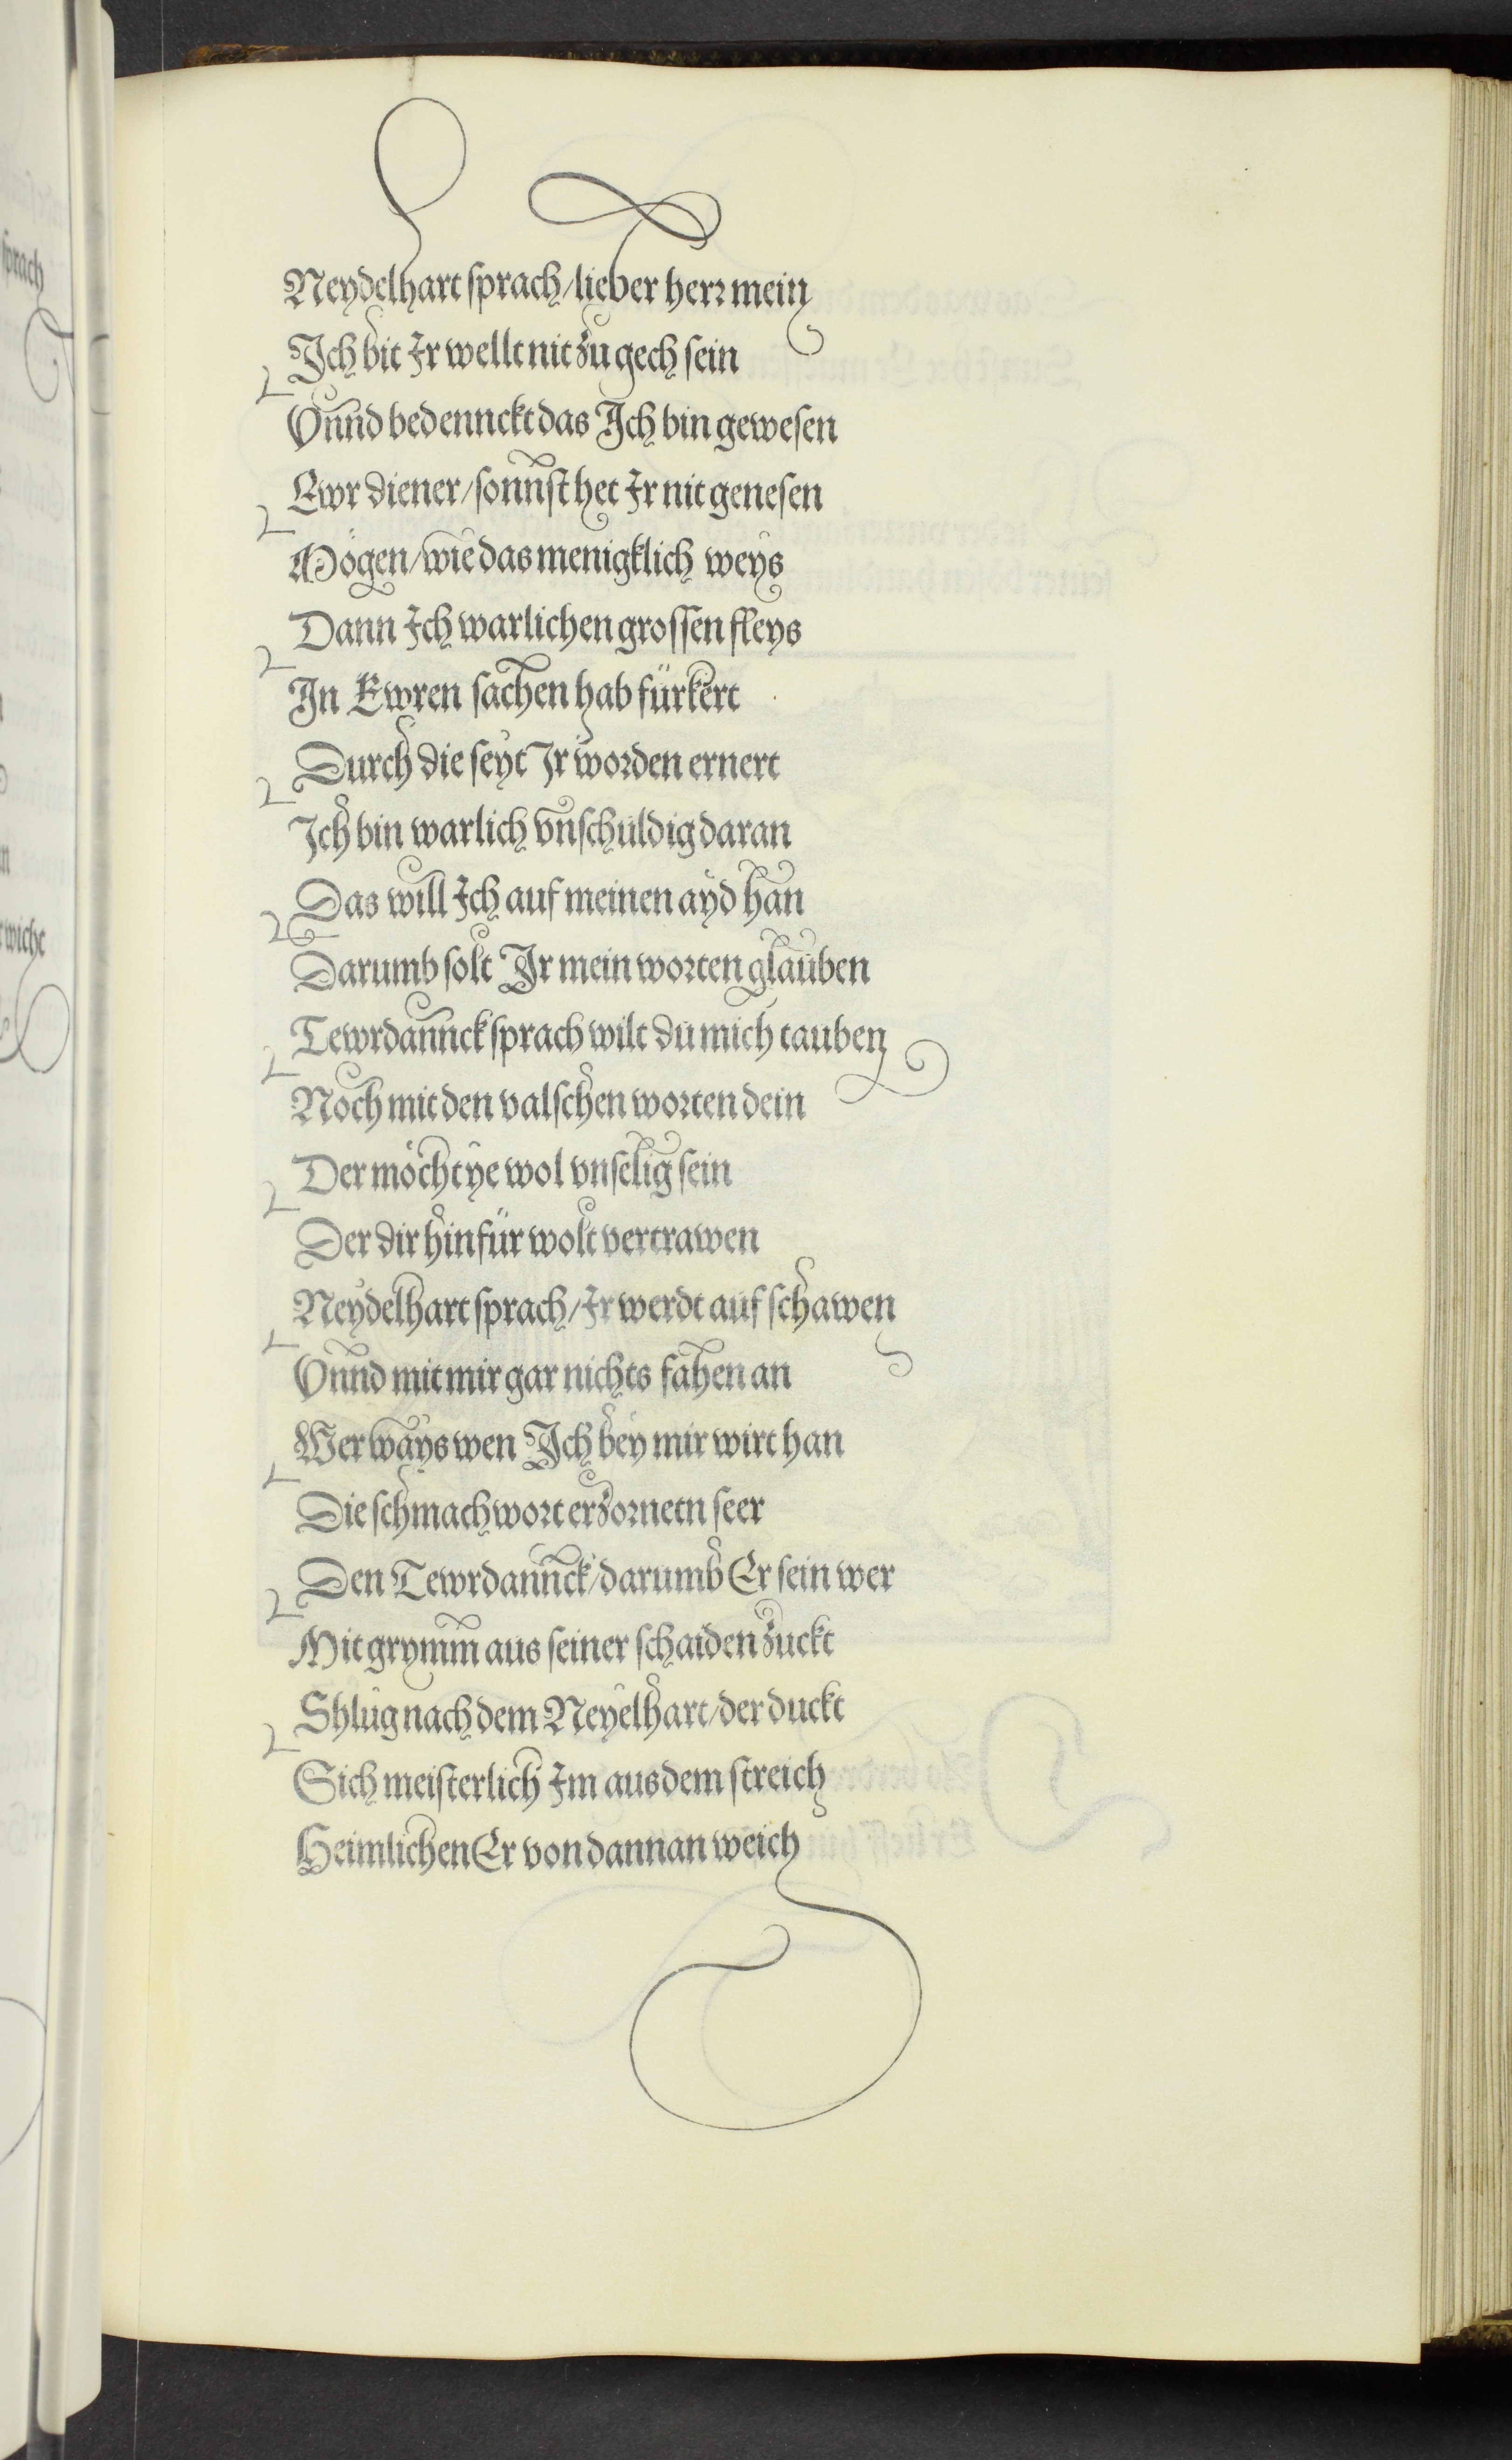 Neydelhart sprach/lieber herr mein
Ich bit Ir wellt nit zu gech sein
Vnnd bedennckt das Ich bin gewesen
Ewr diener/sonnst het Ir nit genesen
Mögen/wie das menigklich weys
Dann Ich warlichen grossen fleys
In Ewren sachen hab fürkert
Durch die seyt Ir worden ernert
Ich bin warlich vnschuldig daran
Das will Ich auf meinen ayd han
Darumb solt Ir mein worten glauben
Tewrdannck sprach wilt du mich tauben
Noch mit den valschen worten dein
Der möcht ye wol vnselig sein
Der dir hinfür wolt vertrawen
Neydelhart sprach/Ir werdt auf schawen
Vnnd mit mir gar nichts fahen an
Wer ways wen Ich bey mir wirt han
Die schmachwort erzornetn seer
Den Tewrdannck/darumb Er sein wer
Mit grymm aus seiner schaiden zuckt
Shlug nach dem Neyelhart/der duckt
Sich meisterlich Im aus dem streich
Heimlichen Er von dannan weich
sprach
wicht